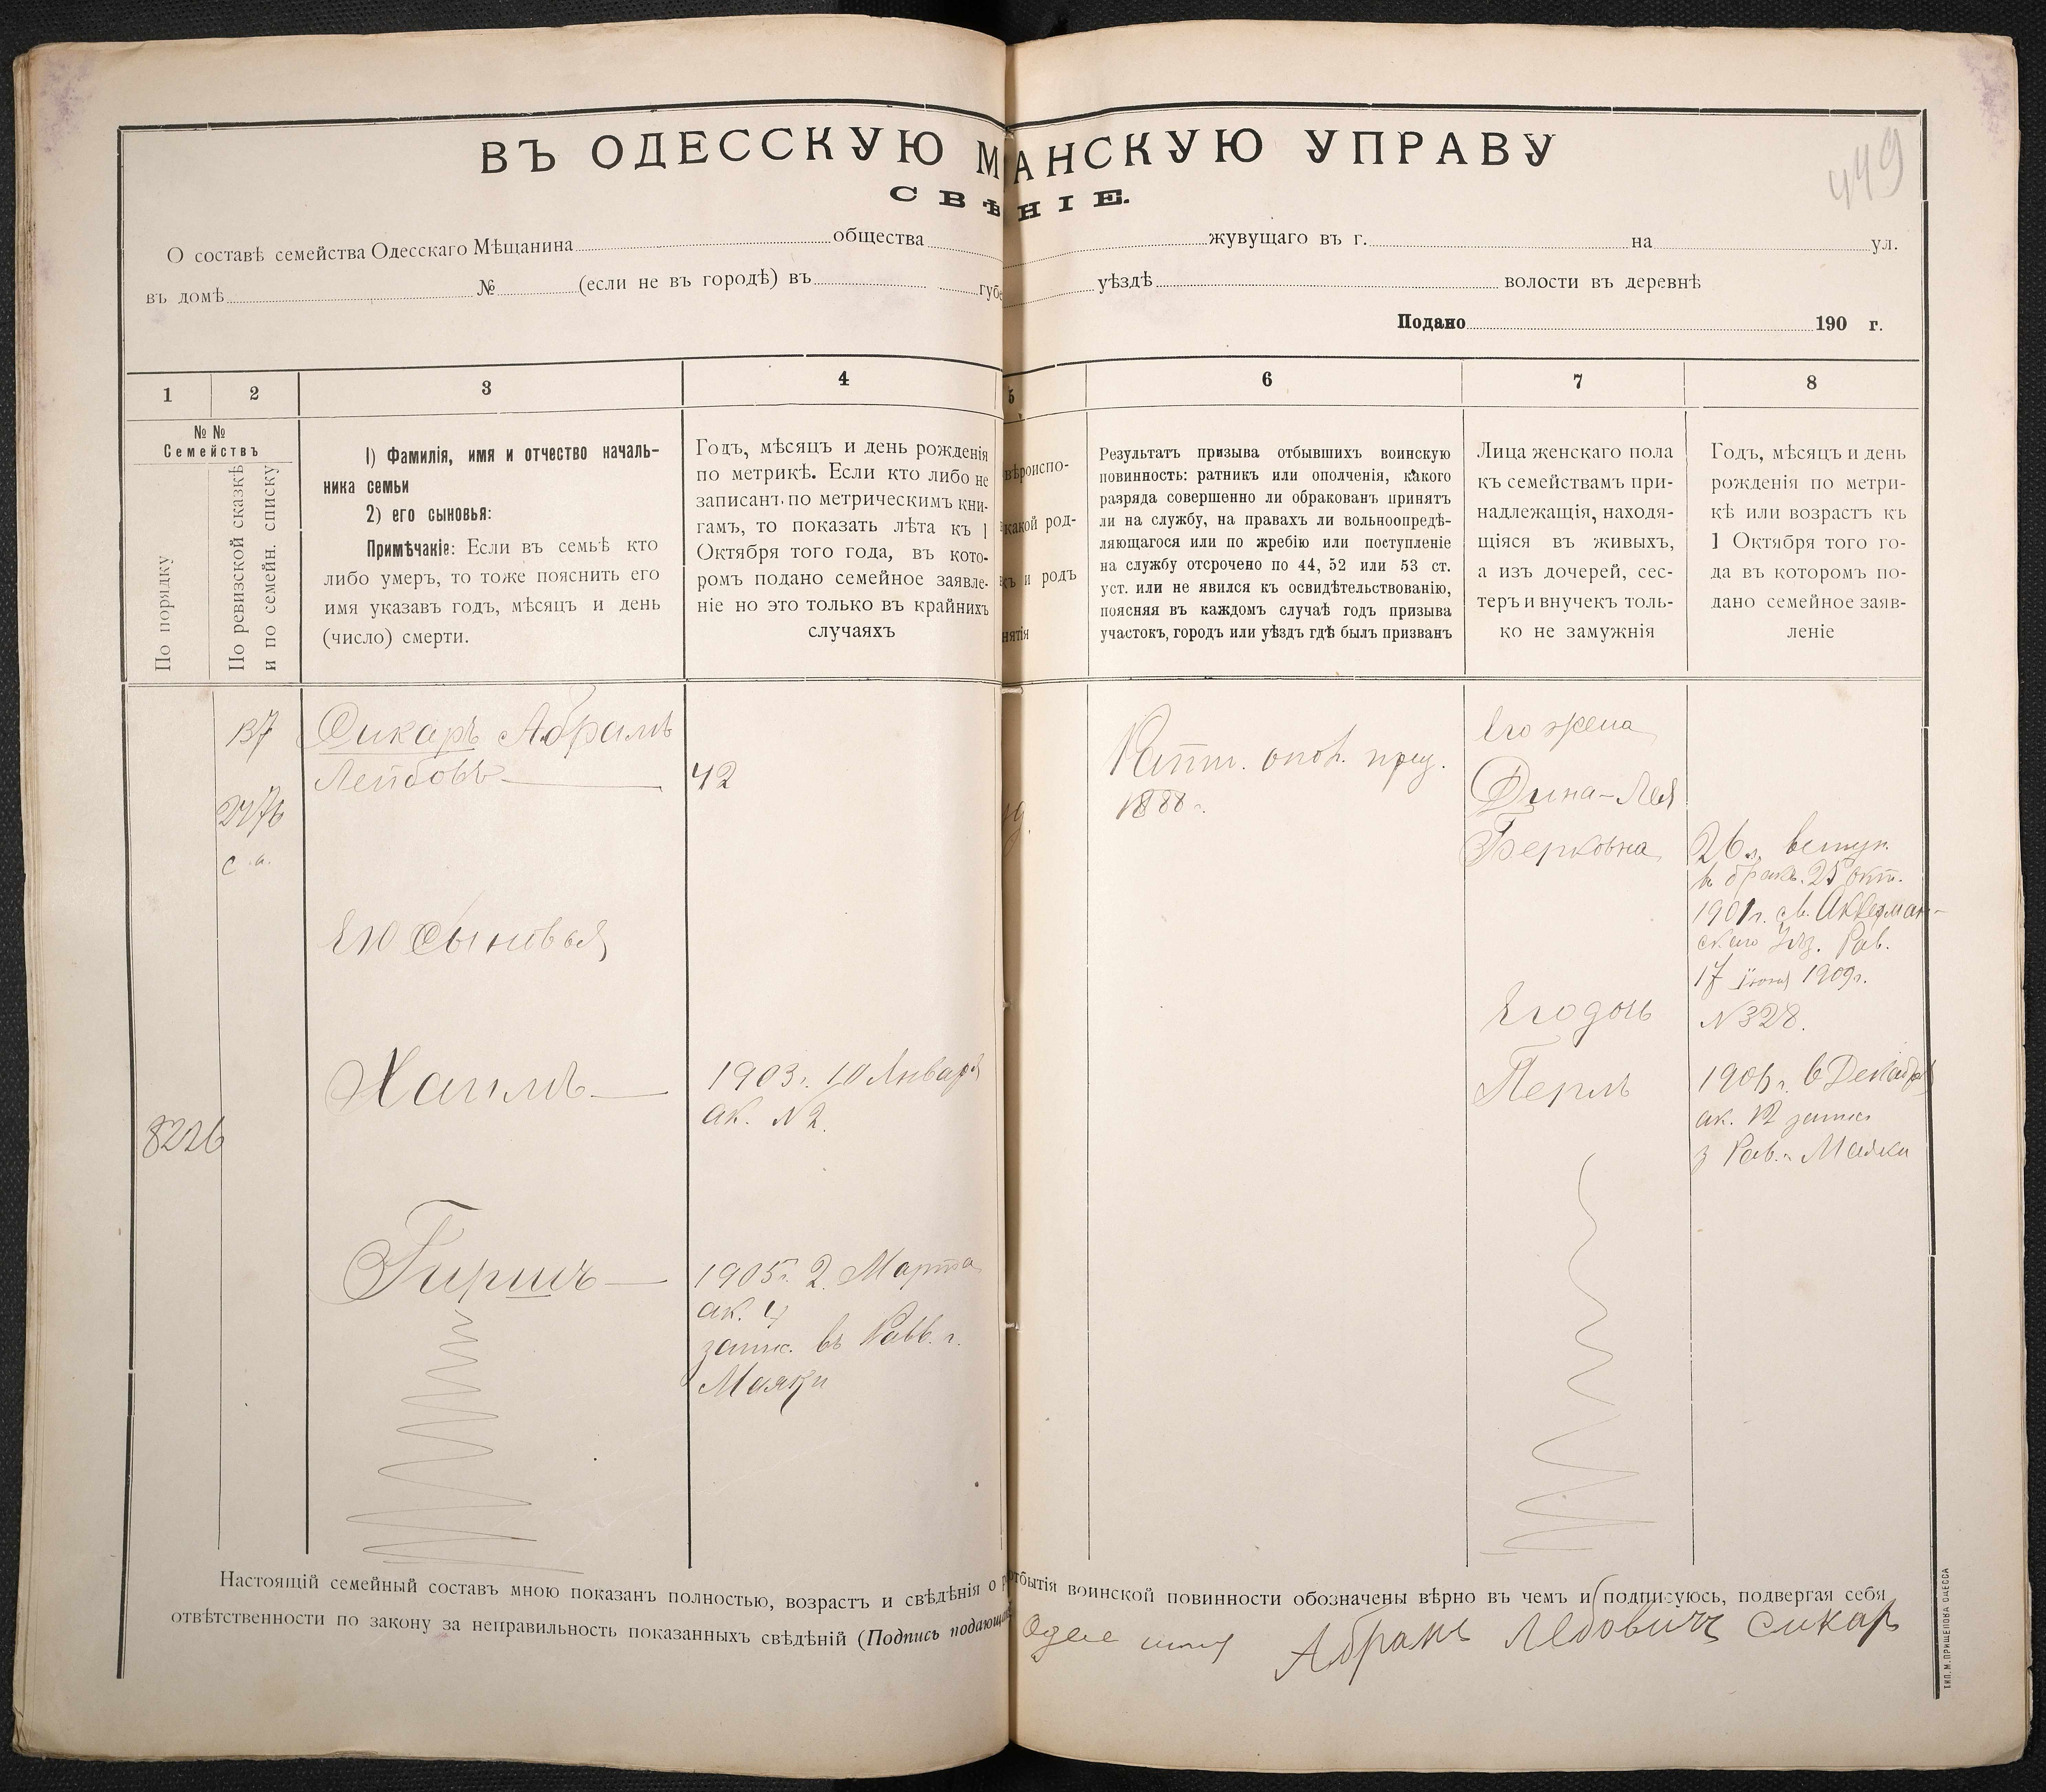 ВЪ ОДЕССКУЮ М АНСКУЮ УПРАВУ
449
СВѢ НІЕ.
О составѣ семейства Одесскаго Мѣщанина общества жувущаго въ г. на ул.
въ домѣ № (если не въ городѣ) въ губе уѣздѣ волости въ деревнѣ
Подано 190 г.
1 2 3 4 5 6 7 8
№№
Семействъ
По порядку
По ревизской сказкѣ
и по семейн. списку
1) Фамилія, имя и отчество началь-
ника семьи
2) его сыновья:
Примѣчаніе: Если въ семьѣ кто
либо умеръ, то тоже пояснить его
имя указавъ годъ, мѣсяцъ и день
(число) смерти.
Годъ, мѣсяцъ и день рожденія
по метрикѣ. Если кто либо не
записанъ по метрическимъ кни-
гамъ, то показать лѣта къ 1
Октября того года, въ кото-
ромъ подано семейное заявле-
ніе но это только въ крайнихъ
случаяхъ
вѣроиспо-
какой род-
и родъ
нятія
Результатъ призыва отбывшихъ воинскую
повинность: ратникъ или ополченія, какого
разряда совершенно ли обракованъ принятъ
ли на службу, на правахъ ли вольноопредѣ-
ляющагося или по жребію или поступленіе
на службу отсрочено по 44, 52 или 53 ст.
уст. или не явился къ освидѣтельствованію,
поясняя въ каждомъ случаѣ годъ призыва
участокъ, городъ или уѣздъ гдѣ былъ призванъ
Лица женскаго пола
къ семействамъ при-
надлежащія, находя-
щіяся въ живыхъ,
а изъ дочерей, сес-
теръ и внучекъ толь-
ко не замужнія
Годъ, мѣсяцъ и день
рожденія по метри-
кѣ или возрастъ къ
1 Октября того го-
да въ которомъ по-
дано семейное заяв-
леніе
137
2476
с.
8226
Сикаръ Абрамъ
Лейбовъ
42
Ратн. опол. приз.
1888 г.
Его жена
Дина-Лея
Берковна
26 л. вступ.
въ бракъ. 25 Окт.
1901 г. св. Аккерман-
скаго Уѣз. Рав.
17 іюня 1909 г.
№ 328.
Его Сыновья
Хаимъ
1903 г. 10 Января
ак. № 2.
Его дочь
Перль
Декабря
ак. 12 запис
Рав. г. Маяки
Гиршъ
1905 г. 2 Марта
ак. 4
запис. въ Равв. г.
Маяки
Настоящій семейный составъ мною показанъ полностью, возрастъ и свѣдѣнія о отбытія воинской повинности обозначены вѣрно въ чемъ и подписуюсь, подвергая себя
отвѣтственности по закону за неправильность показанныхъ свѣдѣній (Подпись подающ
Абрамъ Лебовичъ Сикар
ТИП. М. ПРИЩЕПОВА ОДЕССА